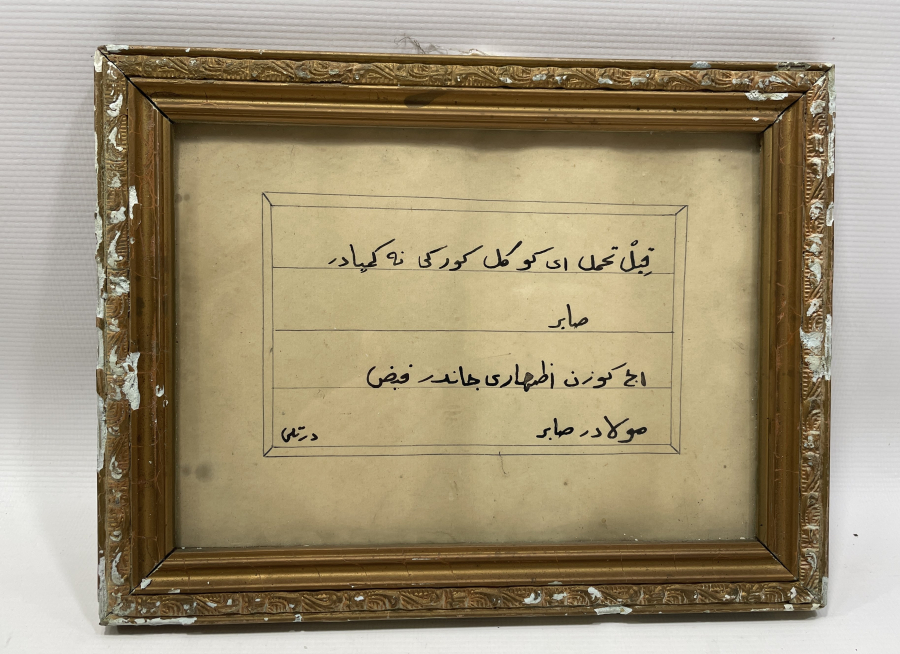 قیل تحمل ای کوکل کورکی نه کمیادر
صابر
اچ کوزن اظهاری جاندر فیض
مولادر صابر